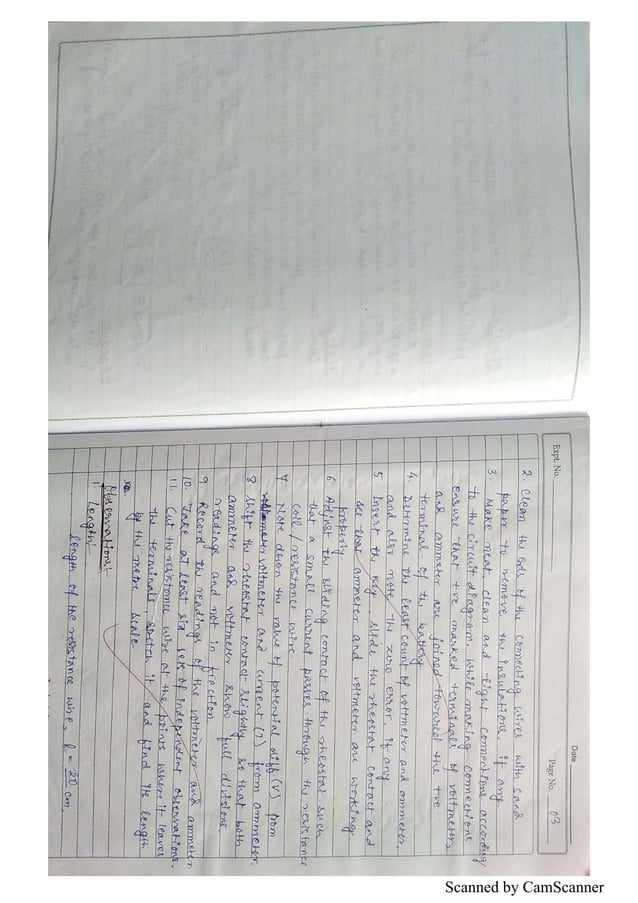 Date
Expt. No.
Page No. 03
2. Clean the ends of the connecting wires with sand
paper to remove the insulations, if any.
3. Make neat, clean and tight connections according
to the circuit diagram. While making connections
ensure that +ve marked terminals of voltmeter,
and ammeter are joined towards the +ve
terminal of the battery
4. Determine the least count of voltmeter and ammeter,
and also note the zero error, if any
5. Insert the key, slide the rheostat contact and
see that ammeter and voltmeter are working
properly
6 Adjust the sliding contact of the rheostat such
that a small current passes through the resistance
coil / resistance wire
7 Note down the value of potential diff (V) from
voltmeter and current (I) from ammeter.
8 Shift the rheostat contact slightly so that both
ammeter and voltmeter show full divisions
readings and not in fraction.
9 Record the readings of the voltmeter and ammeter
10. Take at least six sets of independent observations.
11. Cut the resistance wire at the points where it leaves
the terminals, stretch it and find its length
by the metre scale
Observations:-
1. Length:
Length of the resistance wire, l = 20 cm.
Scanned by CamScanner